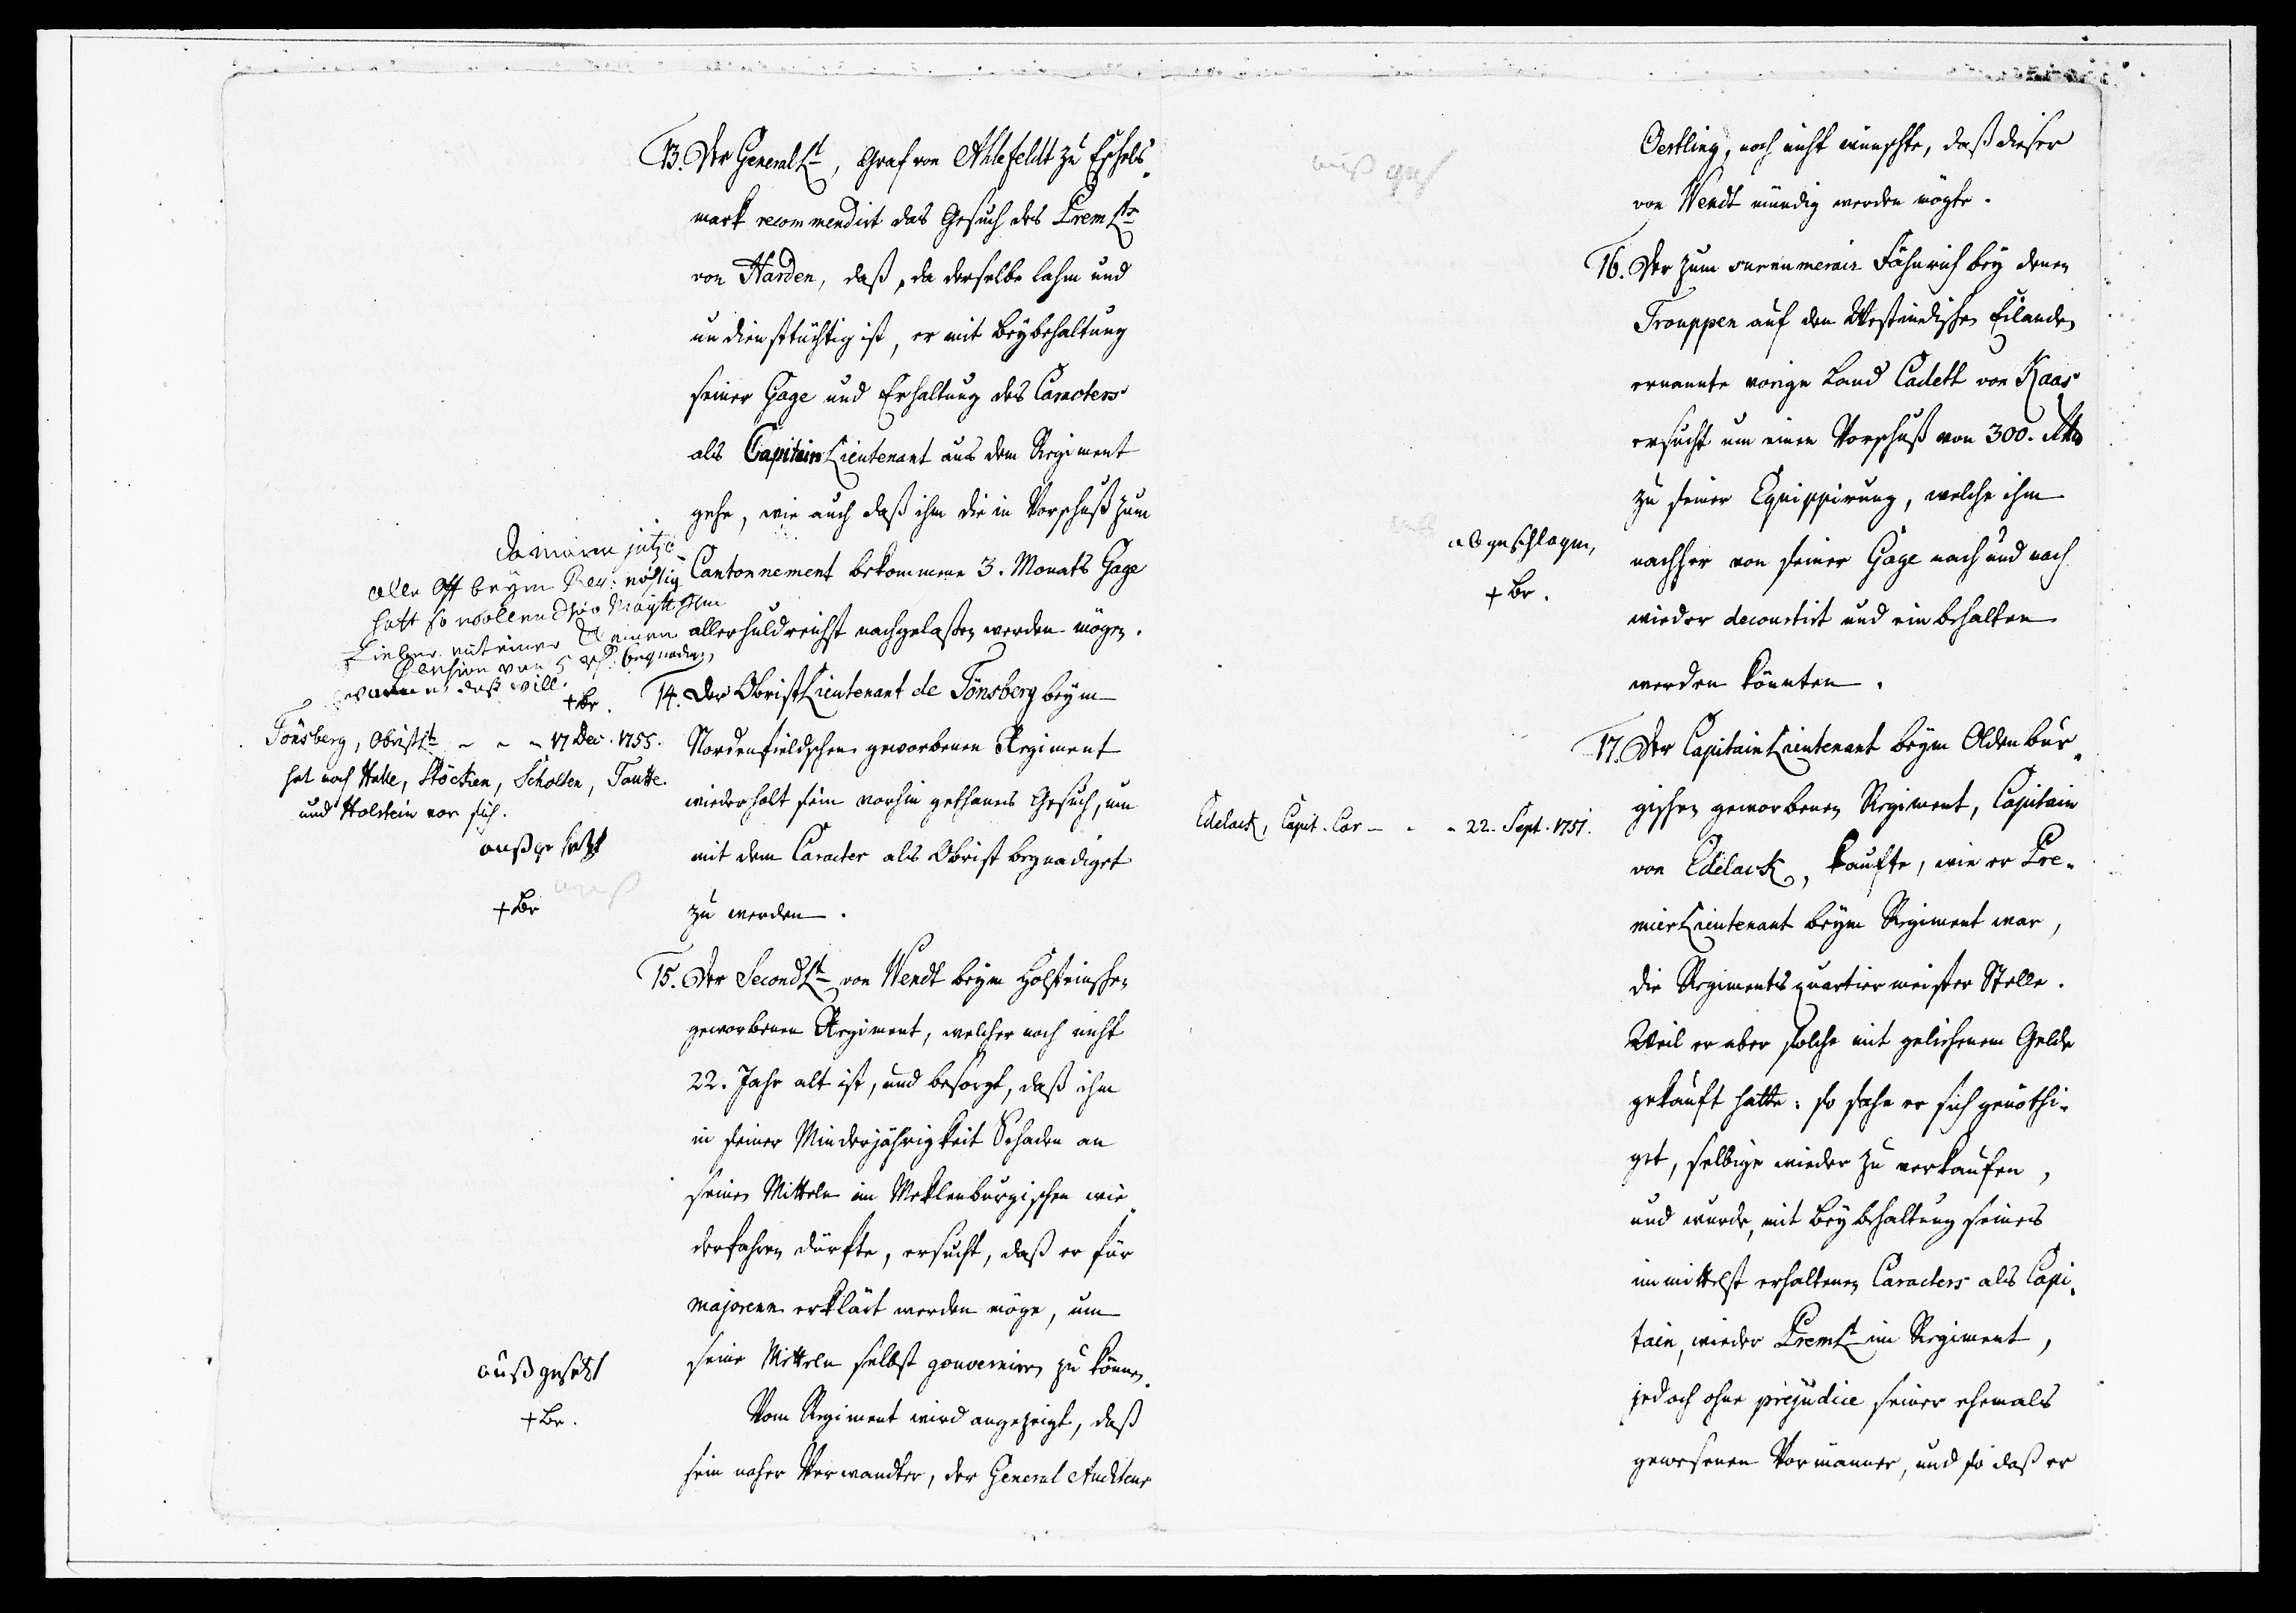 13. Der General Lt, Graf von Ahlefeldt zu Eschels-
mark recommendirt das Gesuch des Prem Lts
von Harden, daß, da derselbe lahm und
undiensttüchtig ist, er mit Beybehaltung
seiner Gage und Erhaltung des Caracters
als Capitain Lieutenant aus dem Regiment
gehe, wie auch daß ihm die in Vorschuß zum
Cantonnement bekommene 3. Monats Gage
allerhuldreichst nachgelaßen werden mögen.
alle Off beym Reg: nöhtig
hatt so wollen
mit einer
Pension von 5 begnaden
daß will.
+ Br.
14. Der Obrist Lieutenant de Tönsberg beym
Nordenfieldschen geworbenen Regiment
wiederholt sein vorhin gethanes Gesuch, um
mit dem Caracter als Obrist begnadiget
zu werden.
Tönsberg, Obrist Lt - - - 17 Dec. 1755.
hat noch Stöcken, Scholten,
und Holstein vor sich.
außgesetzt
+ Br
15. Der Second Lt von Wendt beym Holsteinschen
geworbenen Regiment, welcher noch nicht
22. Jahr alt ist, und besorgt, daß ihm
in seiner Minderjährigkeit Schaden an
seinen Mitteln im Meklenburgischen wie-
derfahren dürfte, ersucht, daß er für
majorenn erklärt werden möge, um
seine Mitteln selbst gouverniren zu können.
Vom Regiment wird angezeigt, daß
sein naher Verwandter, der General Auditeur
außgesetzt
+ Br.
Oertling, noch nicht wünschte, daß dieser
von Wendt mündig werden mögte.
16. Der zum surnumerair Fähnrich bey denen
Trouppen auf den Westindischen Eilanden
ernannte vorige Land Cadett von Kaas
ersucht um einen Vorschuß von 300. Rthr
zu seiner Equippirung, welche ihm
nachher von seiner Gage nach und nach
wieder decourtirt und einbehalten
werden könnten.
abgeschlagen,
+ Br.
17. Der Capitain Lieutenant beym Oldenbur-
gischen geworbenen Regiment, Capitain
von Edelack, kaufte, wie er Pre-
mier Lieutenant beym Regiment war,
die Regimentsquartiermeister Stelle.
Weil er aber solche mit geliehenem Gelde
gekauft hatte: so sahe er sich genöthi-
get, selbige wieder zu verkaufen,
und wurde, mit Beybehaltung seines
immittelst erhaltenen Caracters als Capi-
tain, wieder Prem Lt im Regiment,
jedoch ohne préjudice seiner ehemals
gewesenen Vormänner, und so daß er
Edelack, Capit. Car - - - 22. Sept. 1751.